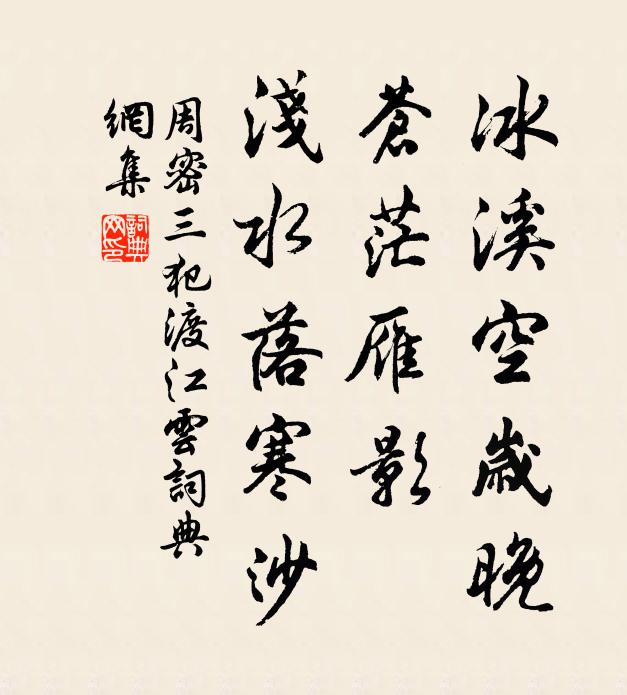 冰溪空歲晚
蒼茫雁影
淺水落寒沙
周密三犯渡江雲詞典
網集
詞典
網印